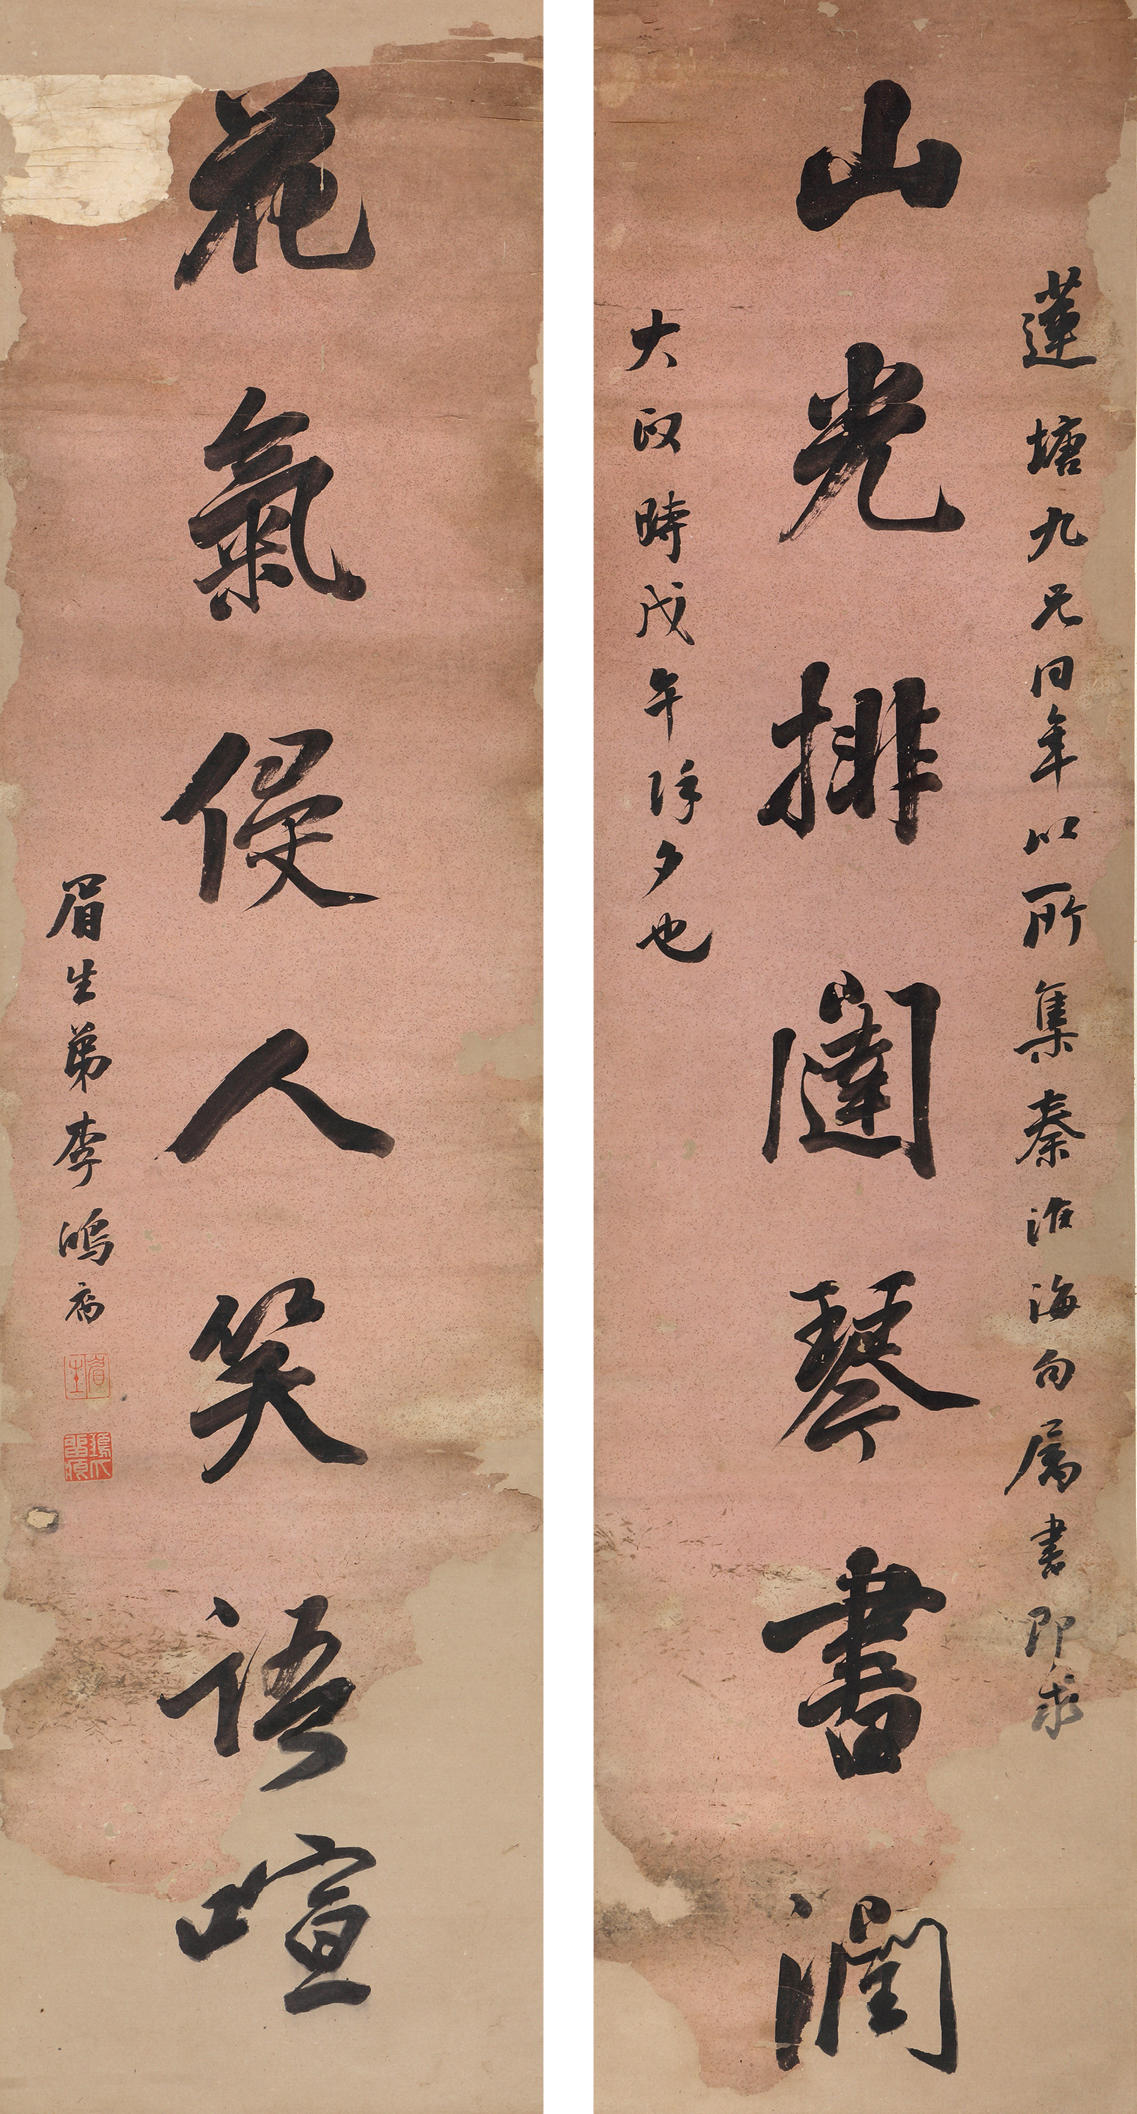 蓮塘九兄同年以所集秦淮海句屬書即求
山光排闥琴書潤
大政時戊午除夕也
花氣侵人笑語喧
眉生弟李鴻裔
眉生